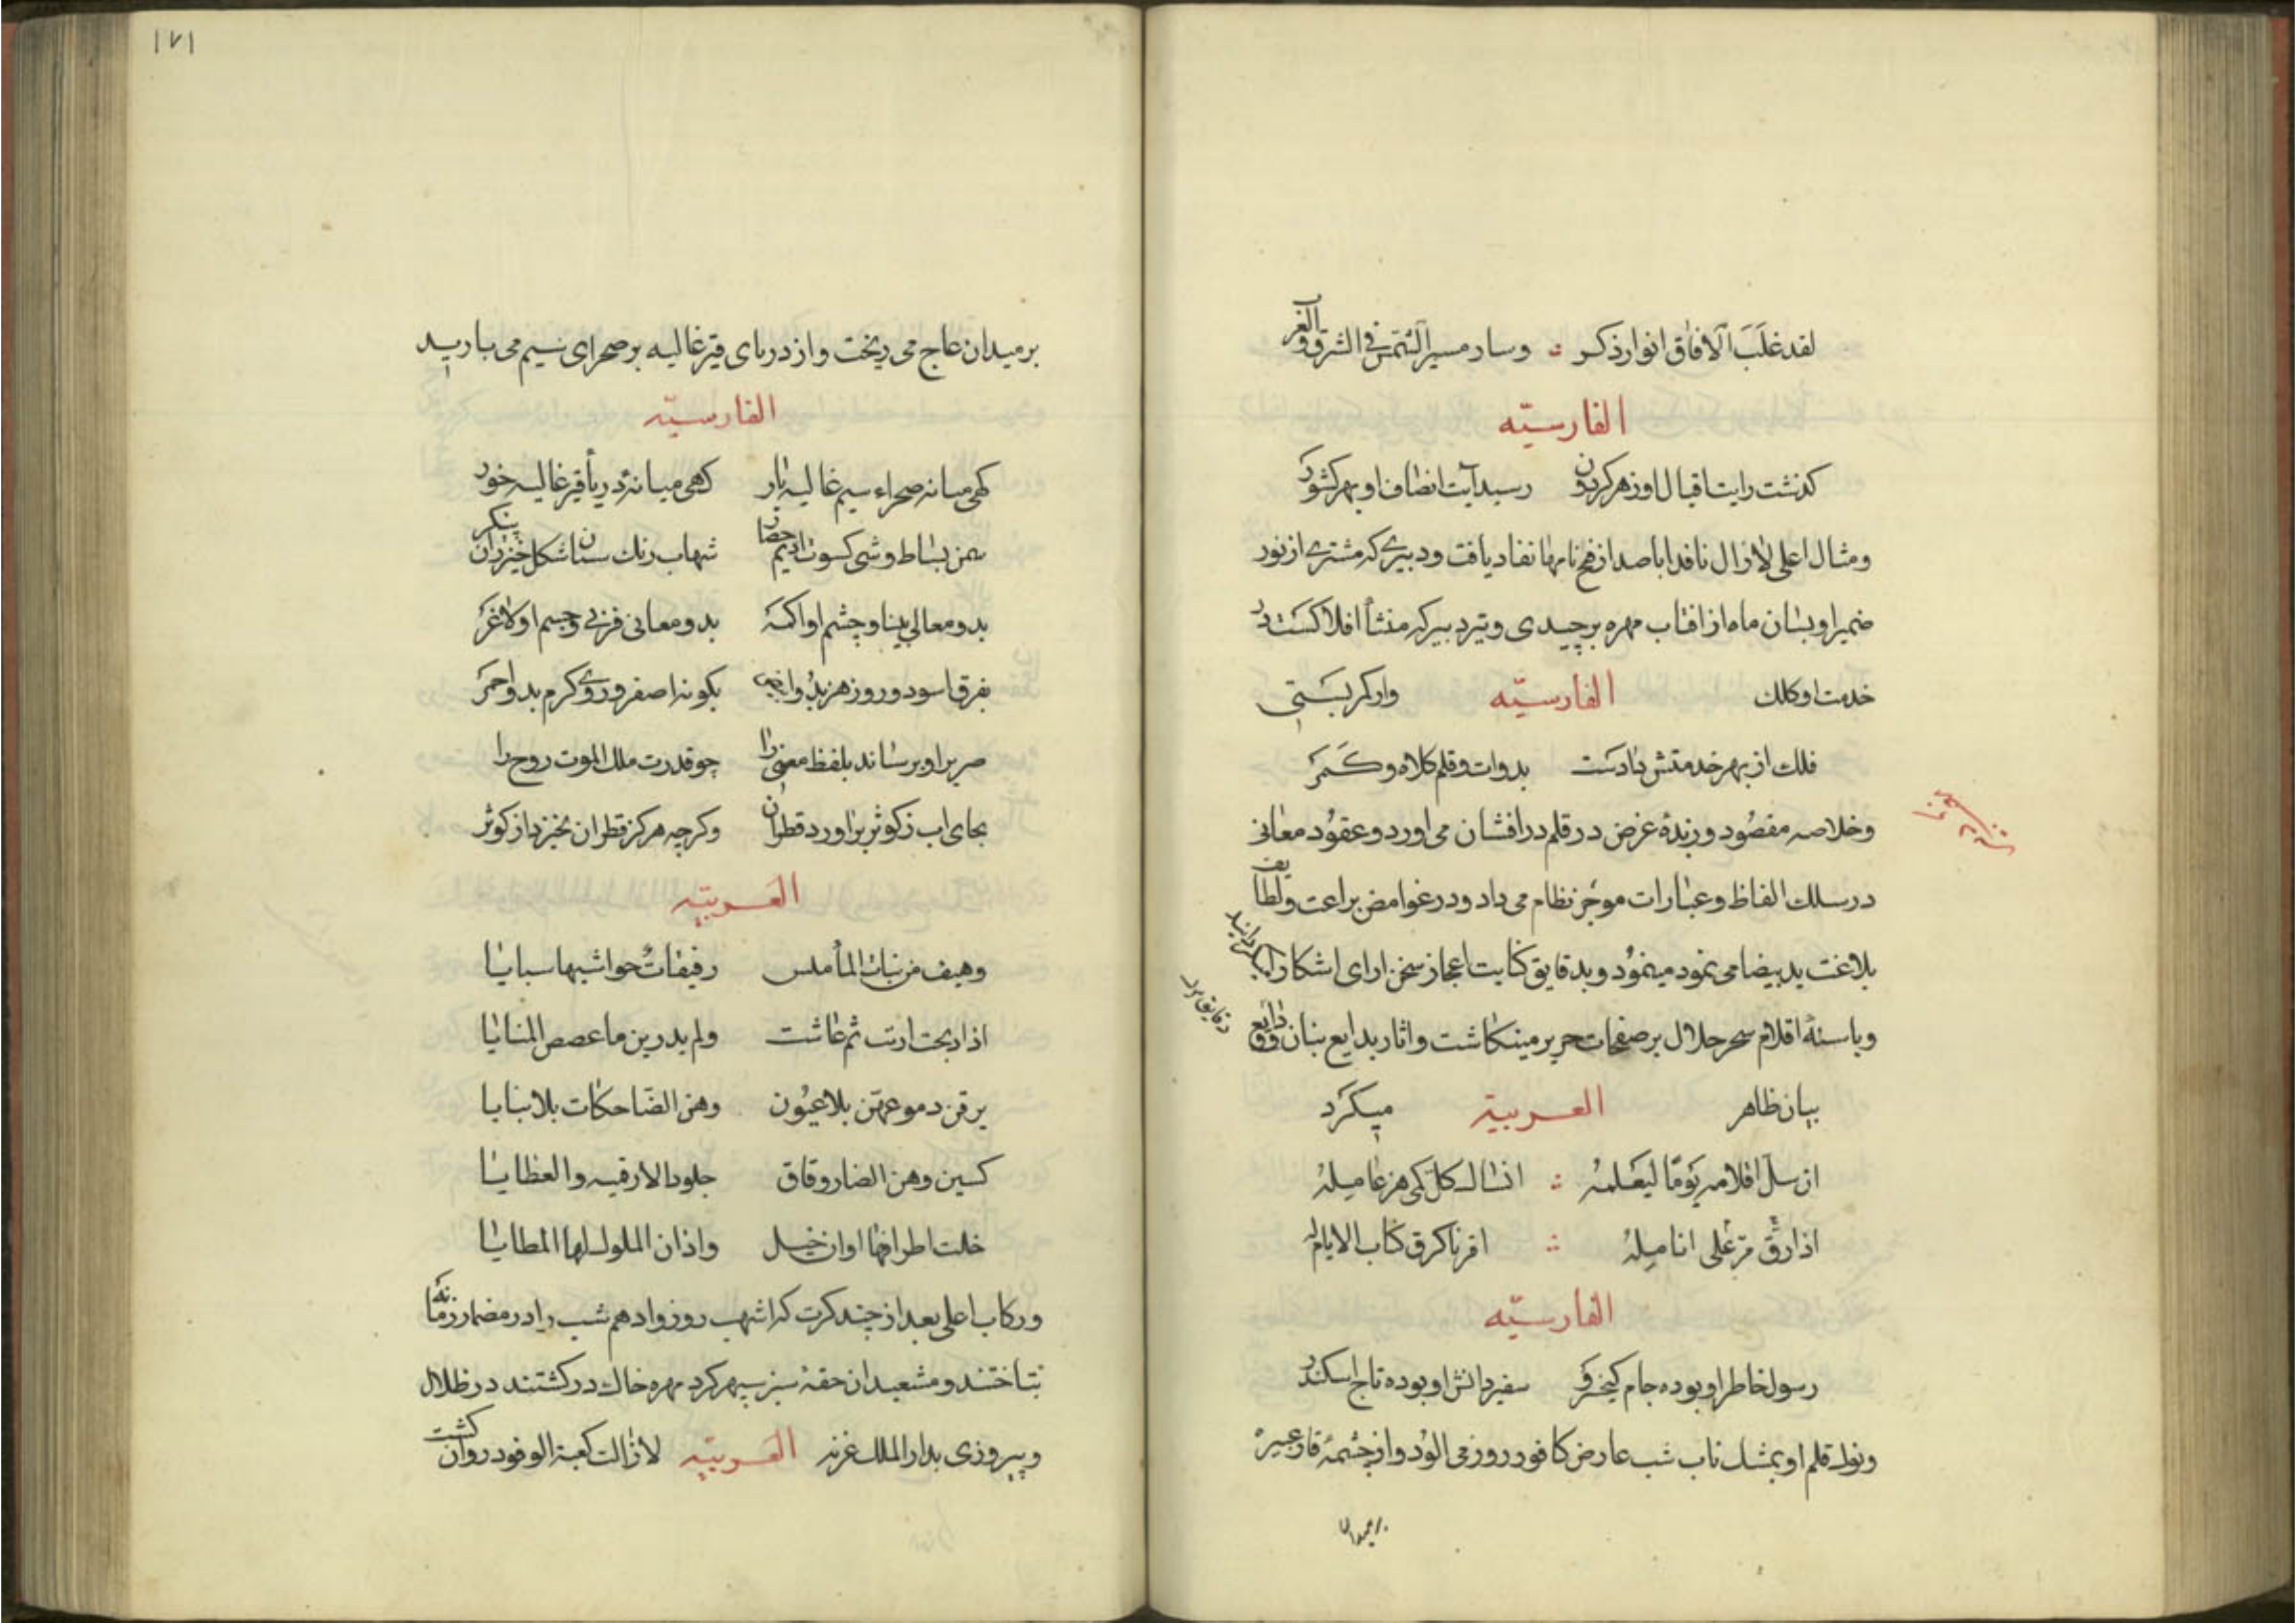 لقد غلب الافاق انوار ذکر ؞ وسار مسیر الشمس فی الشرق والغرب
الفارسیّه
کذشت رایت اقبال او زهر کردون رسید آیت انصاف او بهر کشور
ومثال اعلی لازال نافدا باصدار فتح نامها نفاد یافت ودبیری که مشتری از نور
ضمیر او بسان ماه از افتاب مهره برچیدی وتیر دبیر که منشأ افلاکست در
خدمت او کلک الفارسیّه وار کمر بستی
فلک از بهر خدمتش دادست بدوات وقلم کلاه وکمر
وخلاصه مقصود وزبدهٔ غرض در قلم درافشان می اورد وعقود معانی
در سلک الفاظ وعبارات موجز نظام می داد ودر غوامض براعت ولطایف
بلاغت ید بیضا می نمود مینمود وبدقایق کتابت اعجاز سخن ارای اشکارا
وبالسنهٔ اقلام سحر حلال بر صفحات حریر مینکاشت واثار بدایع بنان
دقایق
بیان ظاهر العربیة میکرد
ان سل اقلامه یوما لیعملها ؞ انساک کل کمی هز عامله
اذا رق علی انامله ؞ اقر بالرق کتاب الانام له
الفارسیّه
رسول خاطر او بوده جام کیخسرو سفیر دانش او بوده تاج اسکندر
ونوک قلم او بمشک ناب شب عارض کافور روز می الود واز چشمهٔ قار عبیر
بر میدان
۱۷۱
بر میدان عاج می ریخت واز دریای قیر غالیه بر صحرای سیم می بارید
الفارسیّه
کهی میانه صحراء سیم غالیه بار کهی میانهٔ دریا قیر غالیه خور
سمن بساط وشی کسوت ادیم شهاب رنک سنان شکل خیزران پیکر
بدو معالی بینا وچشم او اکمه بدو معانی فربی وجسم او لاغر
بفرق اسود وروز هنر بدو ابیض بکونه اصفر وروی کرم بدو احمر
صریر او برساند بلفظ معنی را چو قدرت ملک الموت روح را
بجای اب زکوثر براورد قطران وکرچه هرکز قطران نخیزد از کوثر
العربیّه
وهیف من بنات الماء ملس رقیقات حواشیها سبایا
اذا ذبحت ارتب ثم عاشت ولم یدرین ما غصص المنایا
یرقن دموعهن بلا عیون وهن الضاحکات بلا ثنایا
کسین وهن انضاء رقاق جلود الارقیه والعظایا
خلت اطرافها اوان خیل واذان الملوک لها المطایا
ورکاب اعلی بعد از چند کرت که اشهب روز وادهم شب را در مضمار زمانه
بتاختند ومشعبدان حقهٔ سبز سپهر کرد مهره خاک در کشتند در ظلال
وپیروزی بدار الملک غزنه العربیّه لازالت کعبة الوفود روان کشت